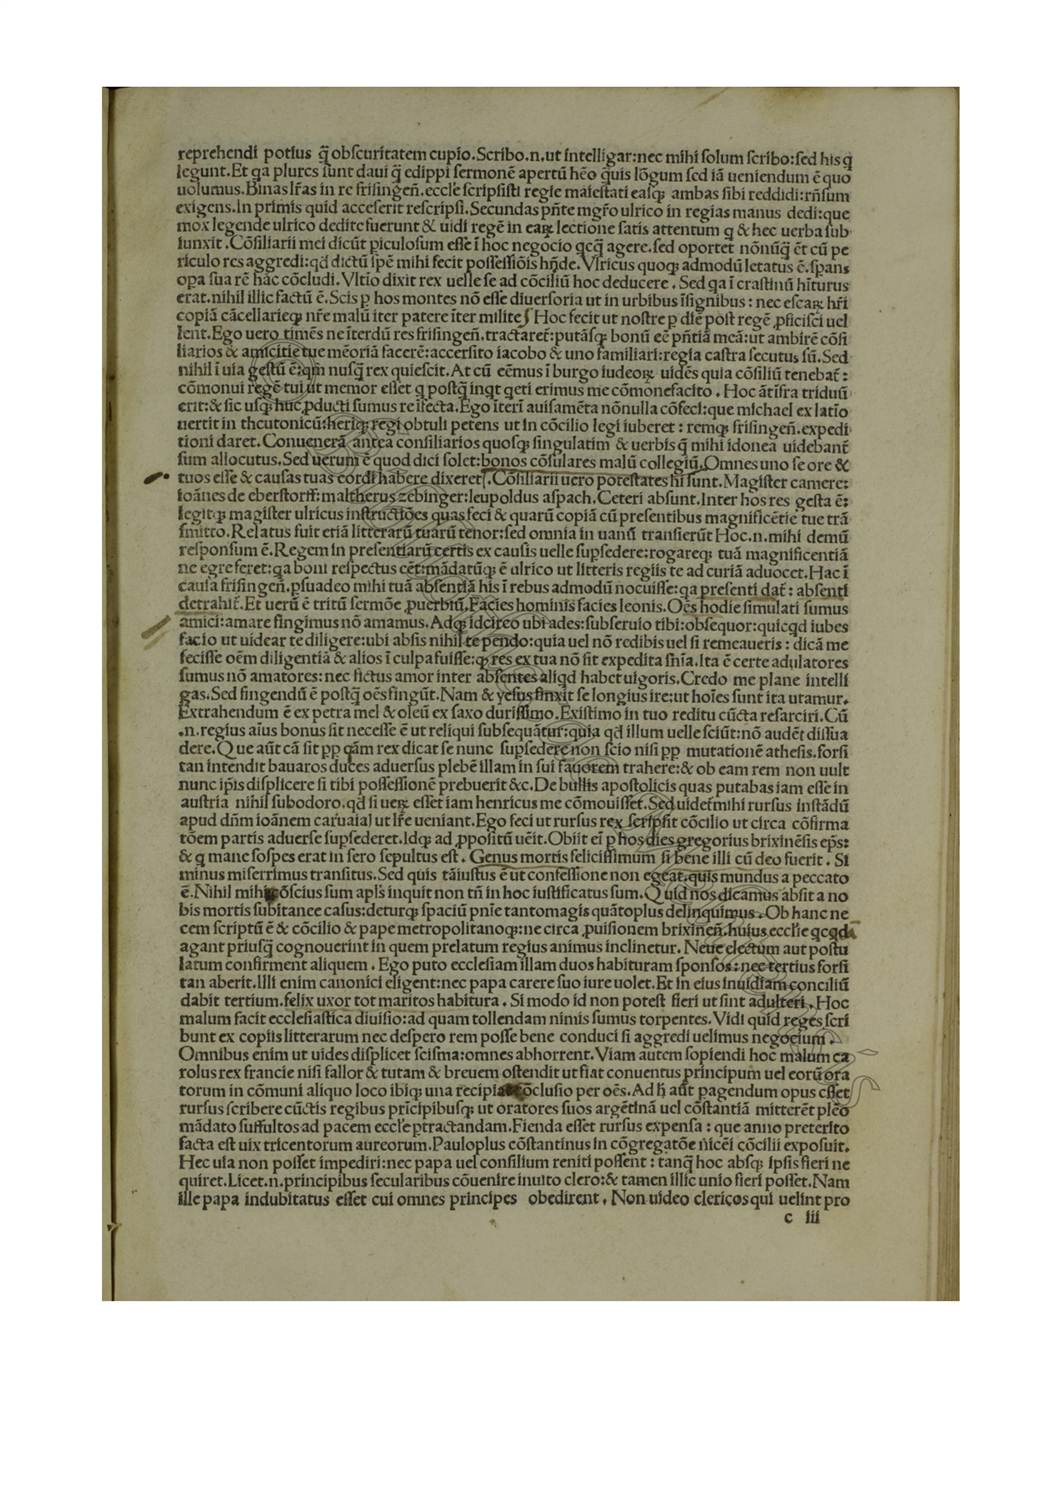 reprehendi potius q̃ obscuritatem cupio.Scribo.n.ut intelligar:nec mihi solum scribo:sed his q
legunt.Et qa plures sunt daui q̃ edippi sermonē apertū hēo q̃uis lōgum sed iā ueniendum ē quo
uolumus.Binas lr̃as in re frisingeñ.eccle scripsisti regie maiestati easqꝫ ambas sibi reddidi:rñsum
exigens.In primis quid acceserit rescripsi.Secundas pñte mgr̃o ulrico in regias manus dedi:que
mox legende ulrico dedite fuerunt & uidi regē in eaꝝ lectione satis attentum q & hec uerba sub
iunxit.Cōsiliarii mei dicūt piculosum esse ī hoc negocio qcq̃ agere.sed oportet nōnūq̃ ēt cū pe
riculo res aggredi:qd̃ dictū spē mihi fecit possessiōis hñde.Vlricus quoqꝫ admodū letatus ē.spans
opa sua rē hāc cōcludi.Vltio dixit rex uelle se ad cōciliū hoc deducere.Sed qa ī crastinū hīturus
erat.nihil illic factū ē.Scis p hos montes nō esse diuersoria ut in urbibus īsignibus:nec escaꝝ hr̃i
copiā cācellarieqꝫ nr̃e malū iter patere iter milites Hoc fecit ut nostre p diē post regē ꝓficisci uel
lent.Ego uero timēs ne īterdū res frisingeñ.tractaret̃:putāsqꝫ bonū eē pñtiā meā:ut ambirē cōsi
liarios & amicitie tue mēoriā facerē:accersito iacobo & uno familiari:regia castra secutus sū.Sed
nihil ī uia gestū ē:qm̄ nusq̃ rex quiescit.At cū eēmus ī burgo iudeoꝝ uidēs quia cōsiliū tenebat̃:
cōmonui regē tui ut memor esset q postq̃ inqt qeti erimus me cōmonefacito.Hoc āt īfra triduū
erit:& sic usqꝫ huc ꝓducti sumus re īfecta.Ego iterī auisamēta nōnulla cōfeci:que michael ex latīo
uertit in theutonicū:heriqꝫ regi obtuli petens ut in cōcilio legi iuberet:remqꝫ frisingeñ.expedi
tioni daret.Conuenerā antea consiliarios quosqꝫ singulatim & uerbis q̃ mihi idonea uidebant̃
sum allocutus.Sed uerum ē quod dici solet:bonos cōsulares malū collegiū.Omnes uno se ore &
tuos esse & causas tuas cordi habere dixeret.Cōsiliarii uero potestates hi sunt.Magister camere:
ioānes de eberstorff:maltherus zebinger:leupoldus aspach.Ceteri absunt.Inter hos res gesta ē:
legitqꝫ magister ulricus instructiōes quas feci & quarū copiā cū presentibus magnificētie tue trā
smitto.Relatus fuit etiā litterarū tuarū tenor:sed omnia in uanū transierūt Hoc.n.mihi demū
responsum ē.Regem in presentiarū certis ex causis uelle supsedere:rogareqꝫ tuā magnificentiā
ne egre feret:qa boni respectus eēt:mādatūqꝫ ē ulrico ut litteris regiis te ad curiā aduocet.Hac ī
causa frisingeñ.psuadeo mihi tuā absentiā his ī rebus admodū nocuisse:qa presenti dat̃:absenti
detrahit̃.Et uerū ē tritū sermōe ꝓuerbiū.Facies hominis facies leonis.Oēs hodie simulati sumus
amici:amare fingimus nō amamus.Adqꝫ idcirco ubi ades:subseruio tibi:obsequor:quicqd iubes
facio ut uidear te diligere:ubi absis nihil te pendo:quia uel nō redibis uel si remeaueris:dicā me
fecisse oēm diligentiā & alios ī culpa fuisse:qꝫ res ex tua nō sit expedita sñia.Ita ē certe adulatores
sumus nō amatores:nec fictus amor inter absentes aliqd habet uigoris.Credo me plane intelli
gas.Sed fingendū ē postq̃ oēs fingūt.Nam & yesus finxit se longius ire:ut hoīes sunt ita utamur.
Extrahendum ē ex petra mel & oleū ex saxo durissimo.Existimo in tuo reditu cūcta resarciri.Cū
.n.regius aīus bonus sit necesse ē ut reliqui subsequātur:quia qd illum uelle sciūt:nō audēt dissua
dere.Que aūt cā sit pp q̃m rex dicat se nunc supsedere non scio nisi pp mutationē athesis.forsi
tan intendit bauaros duces aduersus plebē illam in sui fauorem trahere:& ob eam rem non uult
nunc ip̄is displicere si tibi possessionē prebuerit &c.De bullis apostolicis quas putabas iam esse in
austria nihil subodoro.qd si ueꝝ esset iam henricus me cōmouisset.Sed uidet̃ mihi rursus instādū
apud dñm ioānem caruaial ut lr̃e ueniant.Ego feci ut rursus rex scripsit cōcilio ut circa cōfirma
tōem partis aduerse supsederet.Idqꝫ ad ꝓpositū ueīt.Obiit eī p hos dies gregorius brixinēsis ep̄s:
& q mane sospes erat in sero sepultus est.Genus mortis felicissimum si bene illi cū deo fuerit.Si
minus miserrimus transitus.Sed quis tā iustus ē ut confessione non egeat.quis mundus a peccato
ē.Nihil mihi cōscius sum apl̄s inquit non tñ in hoc iustificatus sum.Quid nos dicamus absit a no
bis mortis subitanee casus:deturqꝫ spaciū pnīe tantomagis quātoplus delinquimus.Ob hanc ne
cem scriptū ē & cōcilio & pape metropolitanoqꝫ:ne circa ꝓuisionem brixineñ.huius ecclie qcqd
agant priusq̃ cognouerint in quem prelatum regius animus inclinetur.Neue electum aut postu
latum confirment aliquem.Ego puto ecclesiam illam duos habituram sponsos:nec tertius forsi
tan aberit.Illi enim canonici eligent:nec papa carere suo iure uolet.Et in eius inuidiam conciliū
dabit tertium.felix uxor tot maritos habitura.Si modo id non potest fieri ut sint adulteri.Hoc
malum facit ecclesiastica diuisio:ad quam tollendam nimis sumus torpentes.Vidi quid reges scri
bunt ex copiis litterarum nec despero rem posse bene conduci si aggredi uelimus negocium.
Omnibus enim ut uides displicet scisma:omnes abhorrent.Viam autem sopiendi hoc malum ca
rolus rex francie nisi fallor & tutam & breuem ostendit ut fiat conuentus principum uel eorū ora
torum in cōmuni aliquo loco ibiqꝫ una recipiat cōclusio per oēs.Ad h̄ aūt pagendum opus esset
rursus scribere cūctis regibus prīcipibusqꝫ ut oratores suos argētinā uel cōstantiā mitterēt plēo
mādato suffultos ad pacem eccle ptractandam.Fienda esset rursus expensa:que anno preterito
facta est uix tricentorum aureorum.Pauloplus cōstantinus in cōgregatōe niceī cōcilii exposuit.
Hec uia non posset impediri:nec papa uel consilium reniti possent:tanq̃ hoc absqꝫ ipsis fieri ne
quiret.Licet.n.principibus secularibus cōuenire inuito clero:& tamen illic unio fieri posset.Nam
ille papa indubitatus esset cui omnes principes obedirent.Non uideo clericos qui uelint pro
c iii